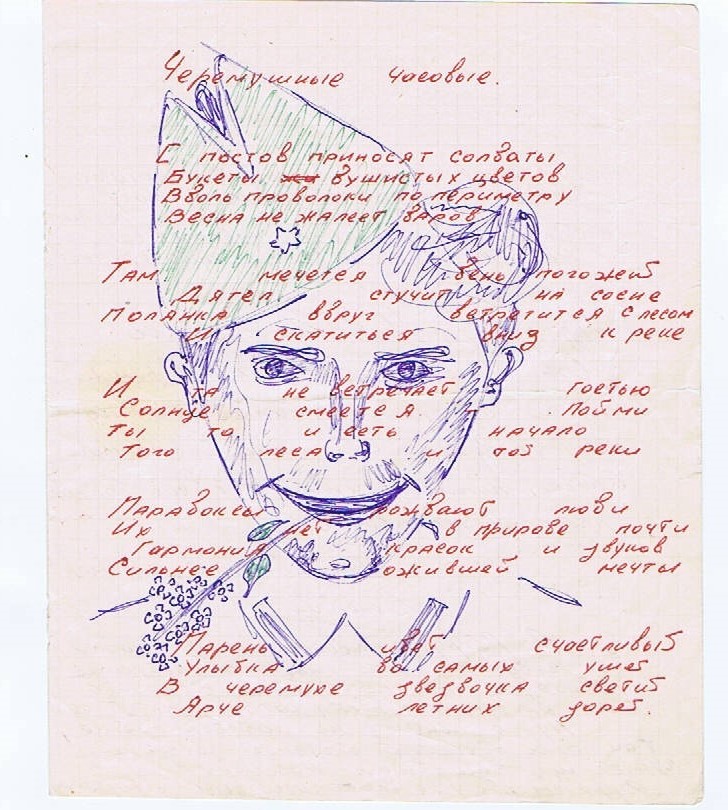 Черемушные часовые.
С постов приносят солдаты
Букеты душистых цветов
Вдоль проволоки по периметру
Весна не жалеет даров
Там мечется день погожий
Дятел стучит на сосне
Полянка вдруг встретится с лесом
И скатиться вниз к реке
И та не встречает гостью
Солнце смеется. - Пойми
Ты то и есть начало
Того леса и той реки
Парадоксы рождают люди
Их нет в природе почти
Гармония красок и звуков
Сильнее ожившей мечты
Парень идет счастливый
Улыбка до самых ушей
В черемухе звездочка светит
Ярче летних зорей.